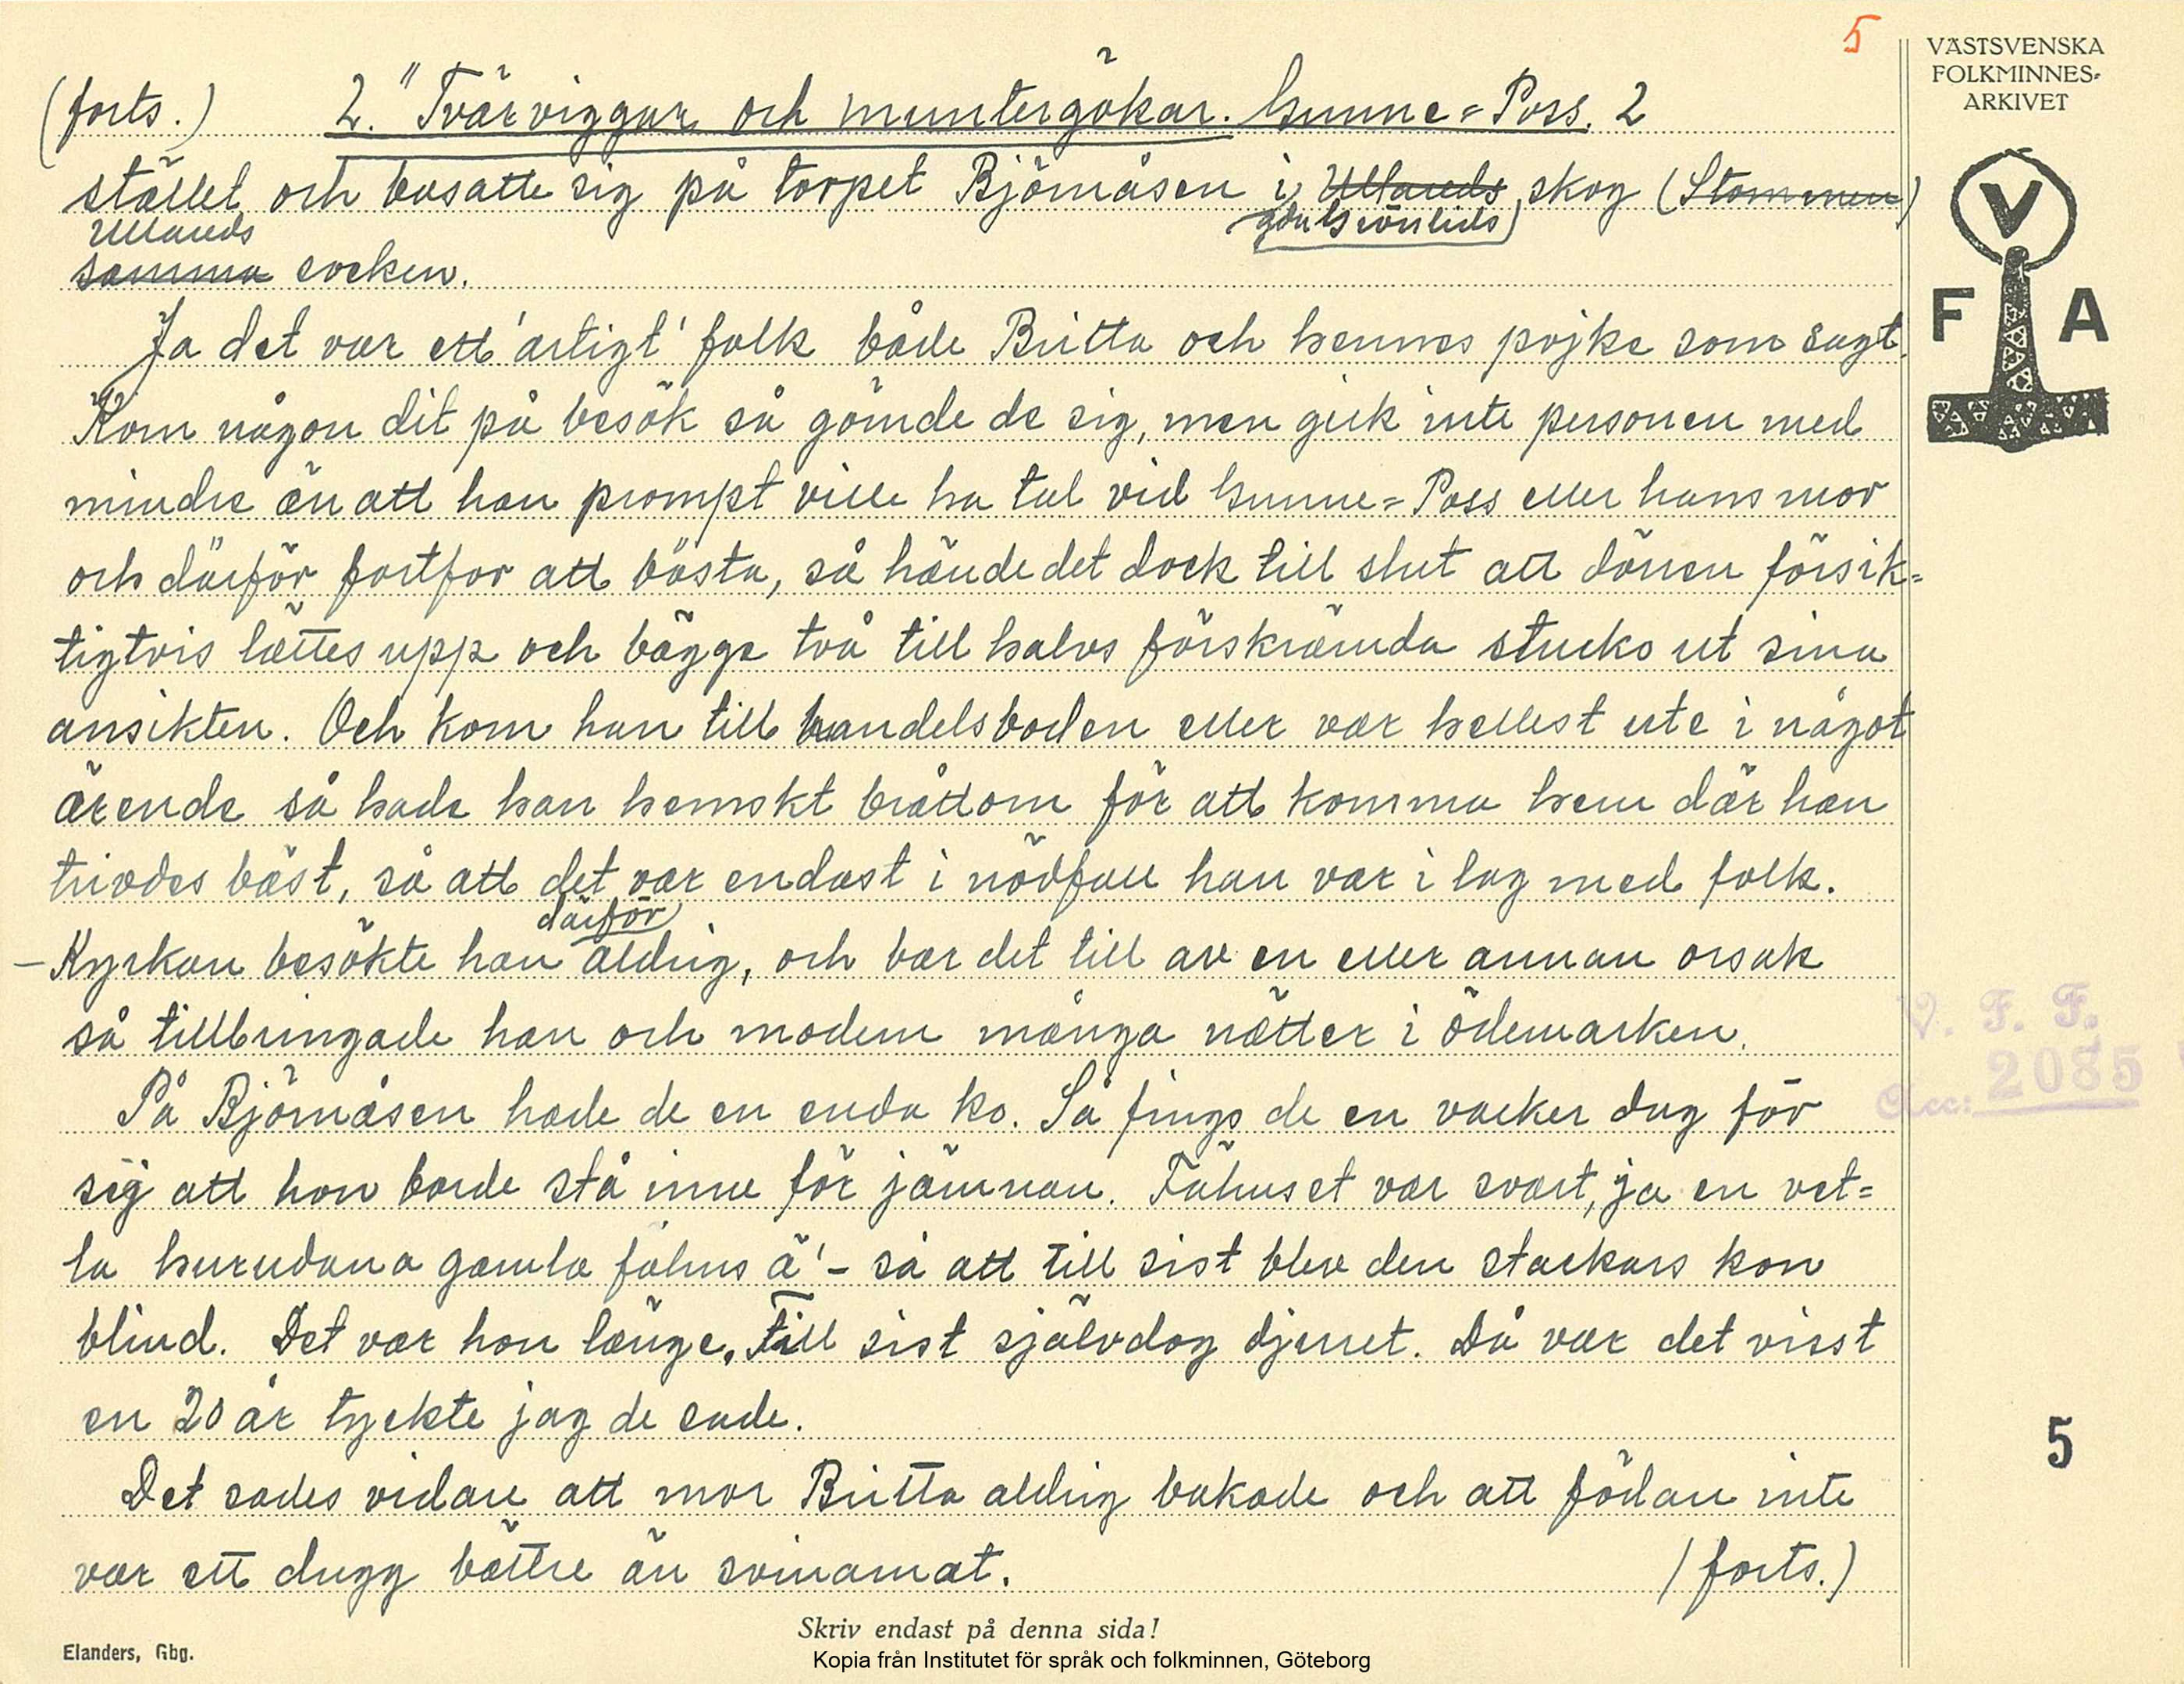 5
VÄSTSVENSKA
FOLKMINNES-
ARKIVET
(forts.) 2. "Tvärviggar och muntergökar. Gunne-Poss. 2
stället och bosatte sig på torpet Björnåsen i Ullareds skog (Stommen)
Ullareds
samma socken.
V
F A
Ja det var ett 'artigt' folk både Britta och hennes pojke som sagt.
Kom någon dit på besök så gömde de sig, men gick inte personen med
mindre än att han prompt ville ha tal vid Gunne-Poss eller hans mor
och därför fortfor att bösta, så hände det dock till slut att dörren försik-
tigtvis lättes upp och bägge två till halvs förskrämda stucko ut sina
ansikten. Och kom han till handelsboden eller var hellest ute i något
ärende så hade han hemskt bråttom för att komma hem där han
trivdes bäst, så att det var endast i nödfall han var i lag med folk.
därför
– Kyrkan besökte han aldrig, och bar det till av en eller annan orsak
så tillbringade han och modern många nätter i ödemarken.
V. F. F.
Acc: 2085
På Björnåsen hade de en enda ko. Så fingo de en vacker dag för
sig att hon borde stå inne för jämnan. Fähuset var svart, ja en vet-
la hurudana gamla fähus ä' – så att till sist blev den stackars kon
blind. Det var hon länge. Till sist självdog djuret. Då var det visst
en 20 år tyckte jag de sade.
5
Det sades vidare att mor Britta aldrig bakade och att födan inte
var ett dugg bättre än svinamat. (forts.)
Skriv endast på denna sida!
Elanders, Gbg.
Kopia från Institutet för språk och folkminnen, Göteborg